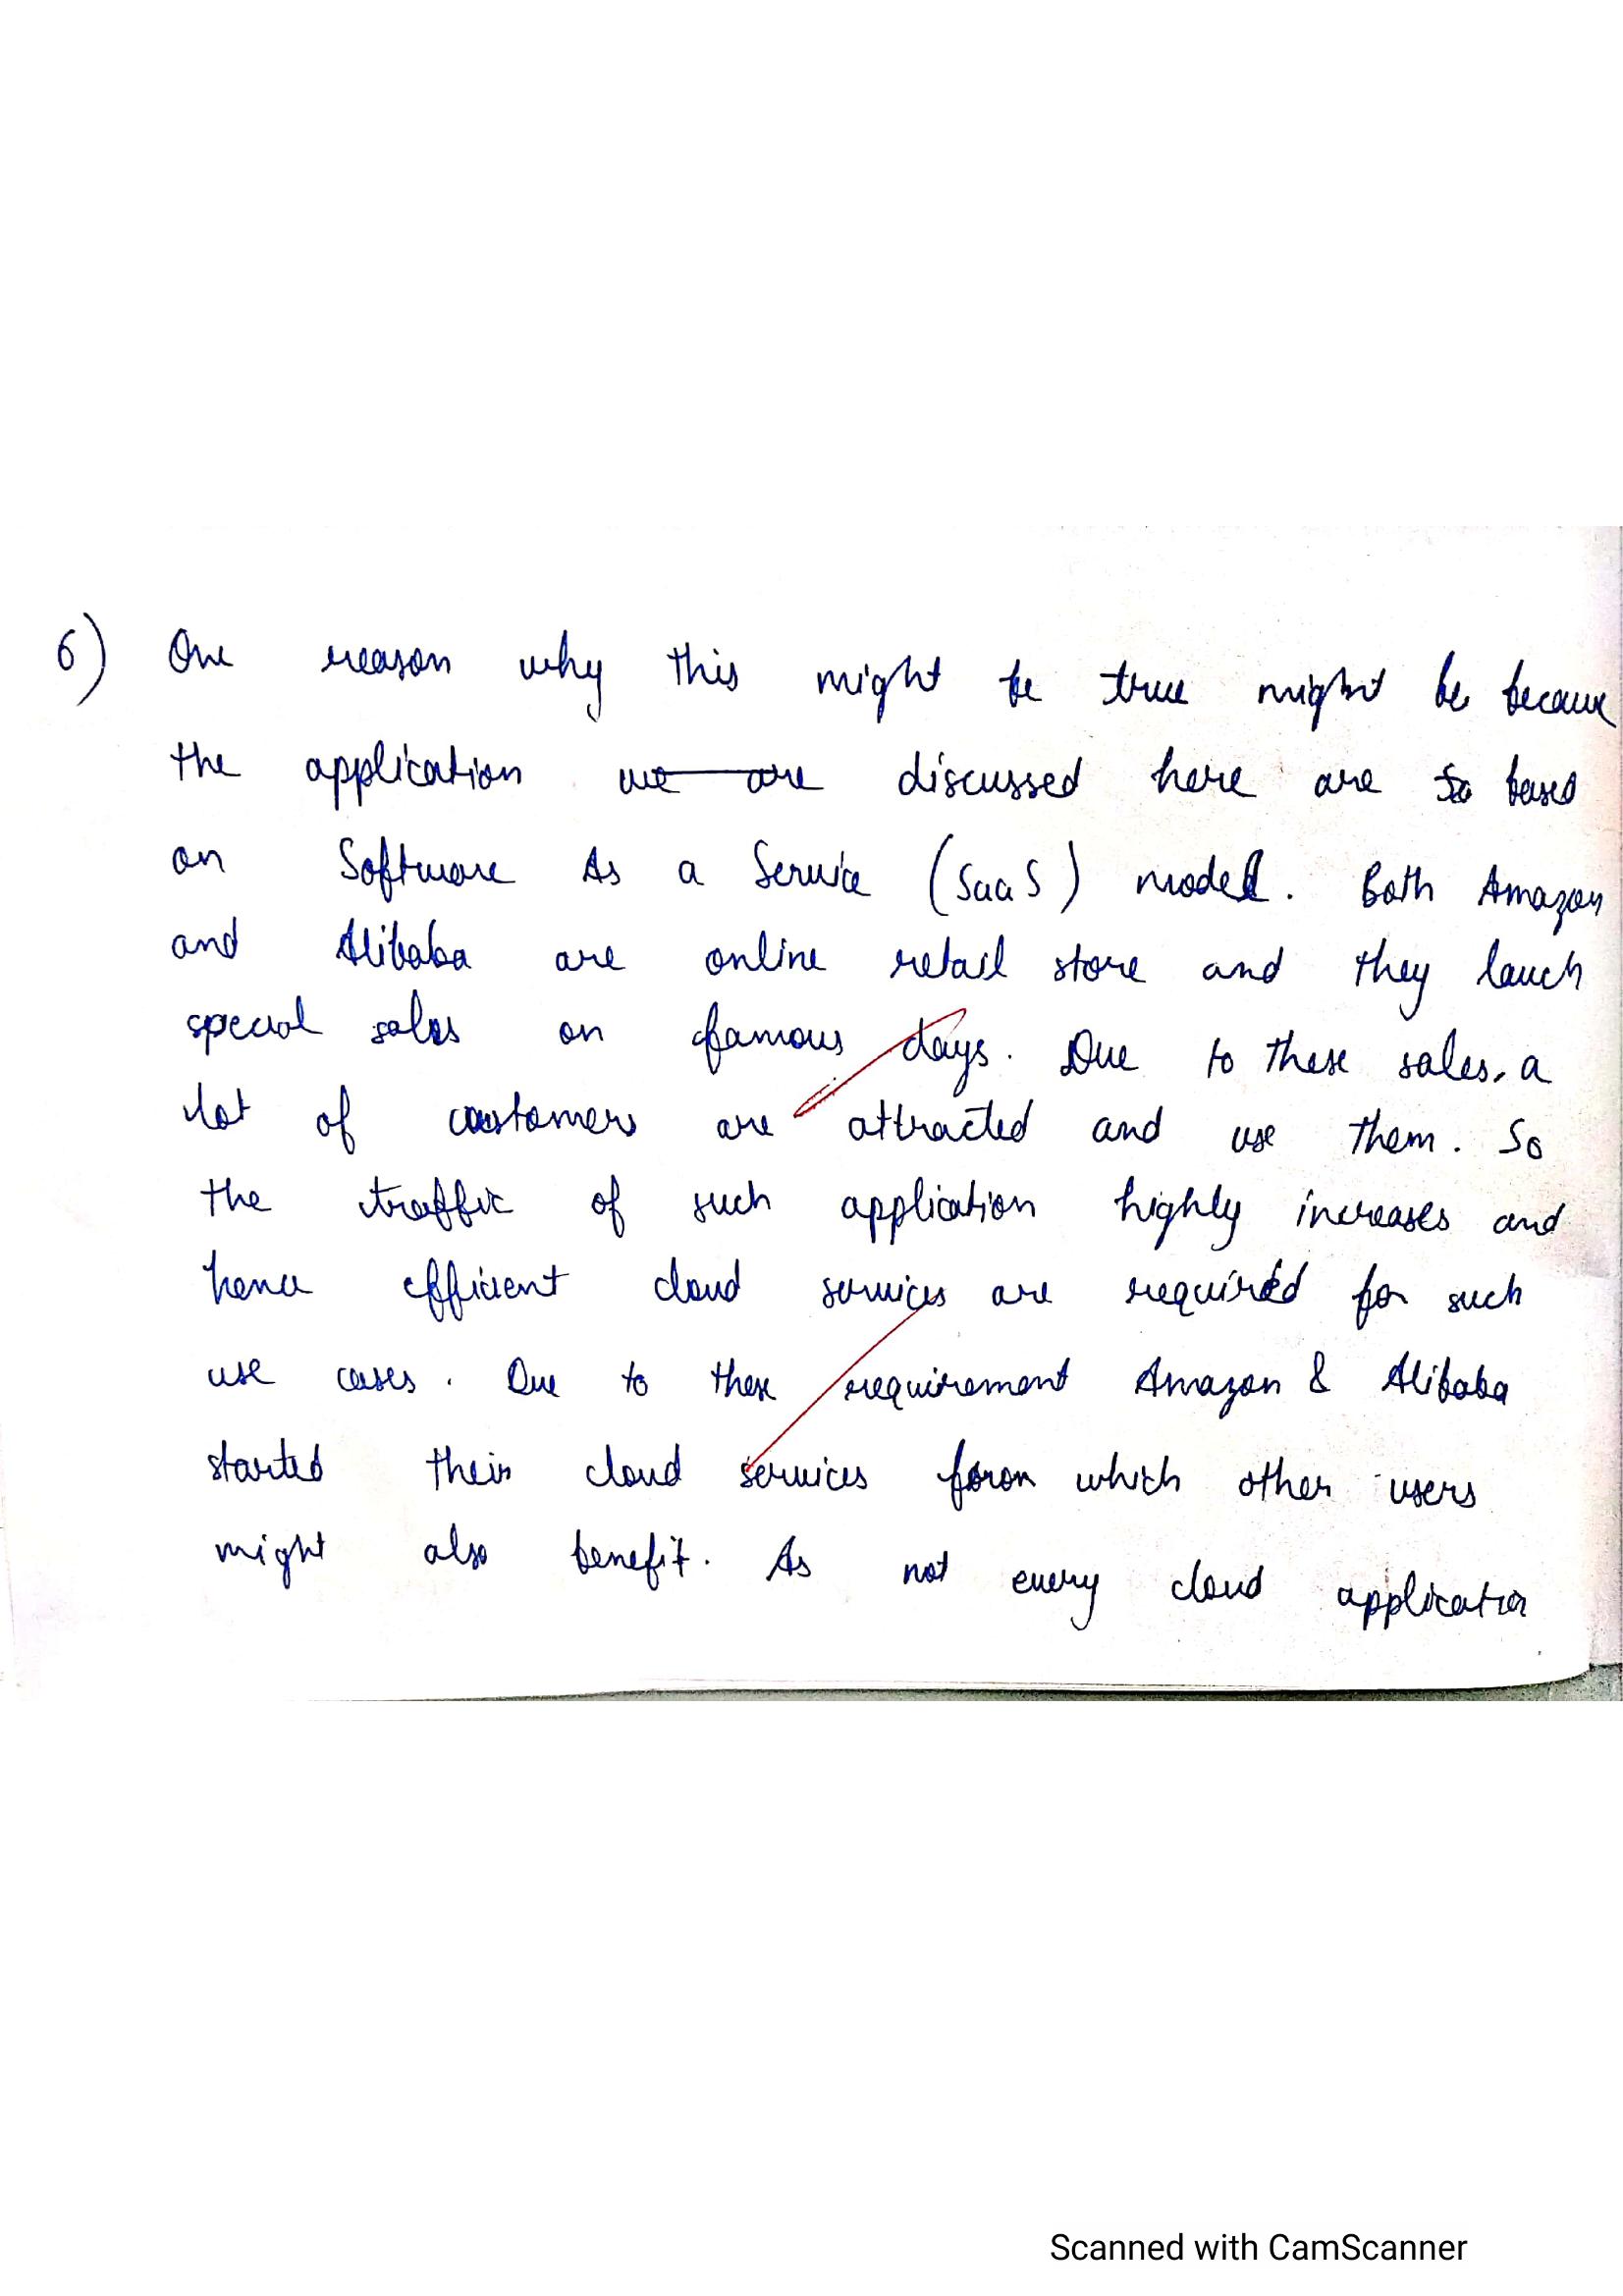 6) One reason why this might be true might be because
the application we are discussed here are So based
on Software As a Service (SaaS) model. Both Amazon
and Alibaba are online retail store and they lauch
special sales on famous days. Due to these sales, a
lot of customers are attracted and use them. So
the traffic of such application highly increases and
hence efficient cloud services are required for such
use cases. Due to these requirement Amazon & Alibaba
started their cloud services from which other users
might also benefit. As not every cloud application
Scanned with CamScanner